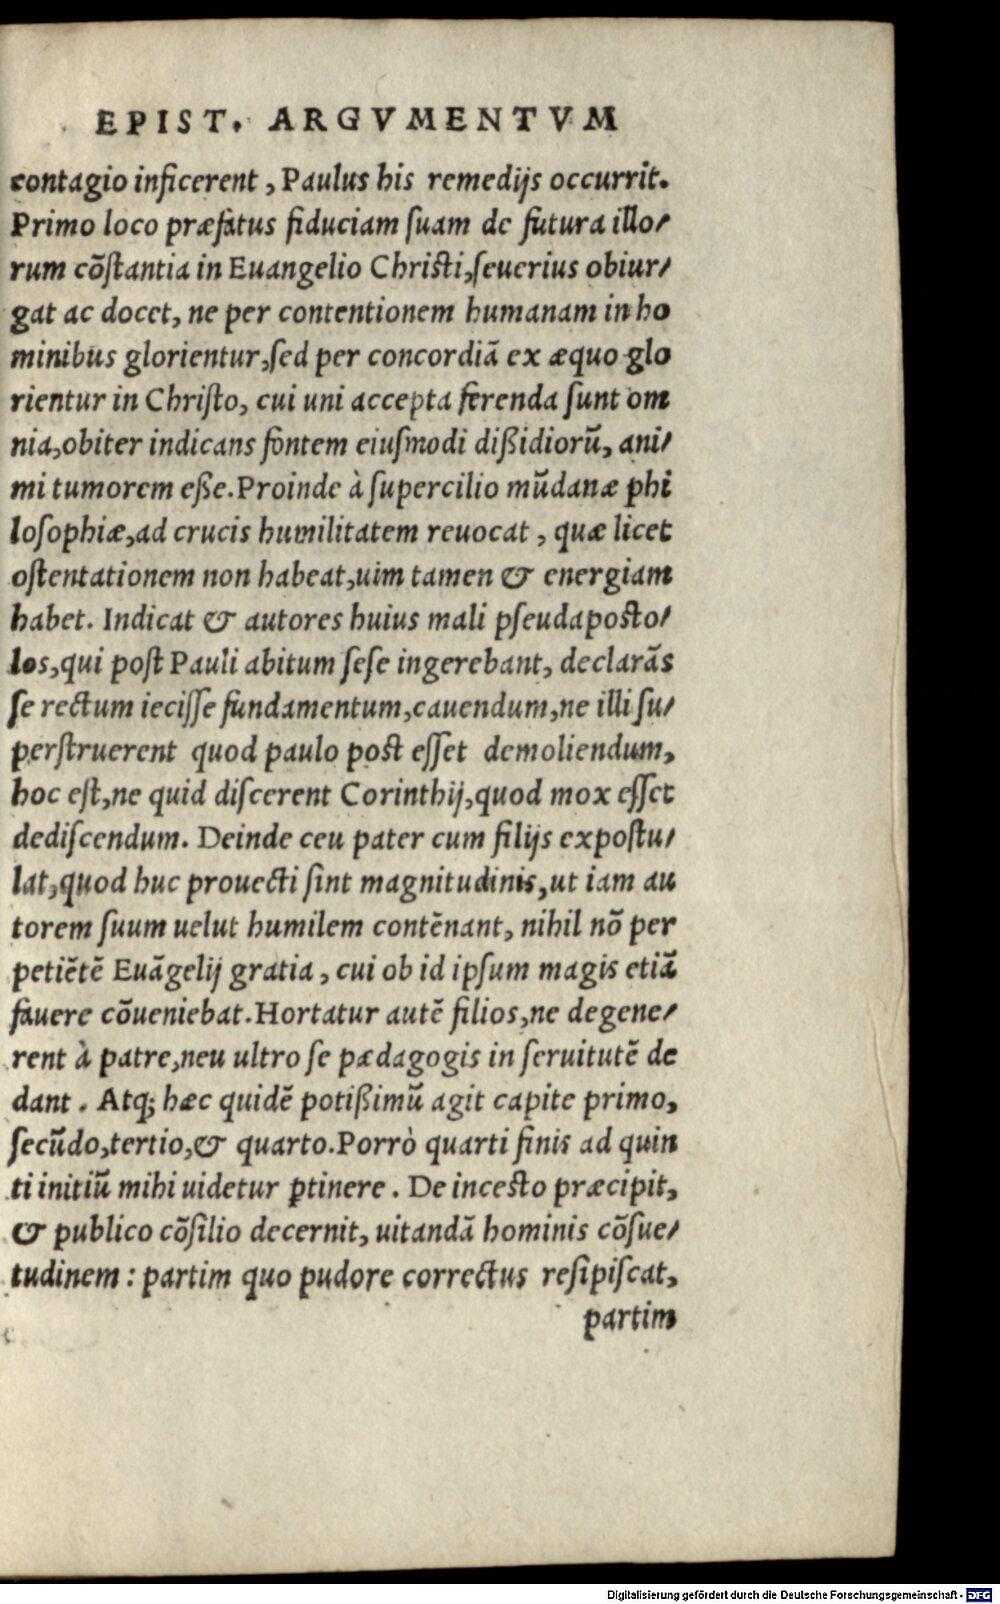 EPIST. ARGVMENTVM
contagio inficerent, Paulus his remedijs occurrit.
Primo loco præfatus fiduciam ſuam de futura illo/
rum cõſtantia in Euangelio Chriſti, ſeuerius obiur/
gat ac docet, ne per contentionem humanam in ho
minibus glorientur, ſed per concordiã ex æquo glo
rientur in Chriſto, cui uni accepta ferenda ſunt om
nia, obiter indicans fontem eiuſmodi dißidiorũ, ani/
mi tumorem eße. Proinde à ſupercilio mũdanæ phi
loſophiæ, ad crucis humilitatem reuocat, quæ licet
oſtentationem non habeat, uim tamen & energiam
habet. Indicat & autores huius mali pſeudapoſto/
los, qui poſt Pauli abitum ſeſe ingerebant, declarãs
ſe rectum ieciſſe fundamentum, cauendum, ne illi ſu/
perſtruerent quod paulo poſt eſſet demoliendum,
hoc eſt, ne quid diſcerent Corinthij, quod mox eſſet
dediſcendum. Deinde ceu pater cum filijs expoſtu/
lat, quod huc prouecti ſint magnitudinis, ut iam au
torem ſuum uelut humilem contẽnant, nihil nõ per
petiẽtẽ Euãgelij gratia, cui ob id ipſum magis etiã
fauere cõueniebat. Hortatur autẽ filios, ne degene/
rent à patre, neu ultro ſe pædagogis in ſeruitutẽ de
dant. Atq; hæc quidẽ potißimũ agit capite primo,
ſecũdo, tertio, & quarto. Porrò quarti finis ad quin
ti initiũ mihi uidetur ꝑtinere. De inceſto præcipit,
& publico cõſilio decernit, uitandã hominis cõſue/
tudinem: partim quo pudore correctus reſipiſcat,
partim
Digitalisierung gefördert durch die Deutsche Forschungsgemeinschaft - DFG